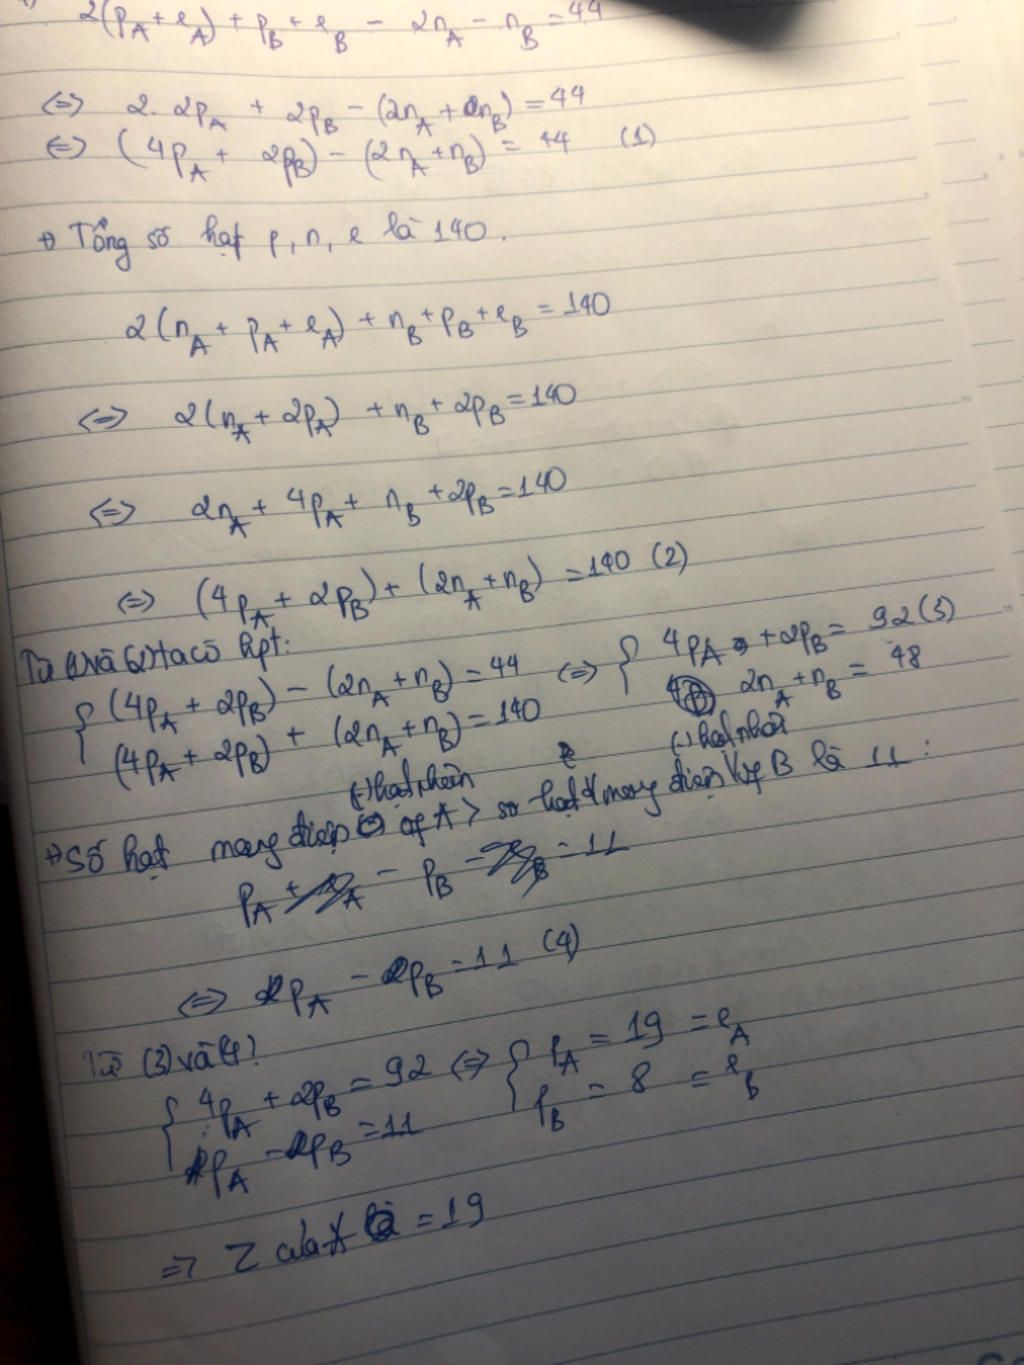 2(pA + eA) + pB + eB - 2nA - nB = 44
<=> 2. 2pA + 2pB - (2nA + nB) = 44
<=> (4pA + 2pB) - (2nA + nB) = 44 (1)
+) Tổng số hạt p, n, e là 140.
2(nA + pA + eA) + nB + pB + eB = 140
<=> 2(nA + 2pA) + nB + 2pB = 140
<=> 2nA + 4pA + nB + 2pB = 140
<=> (4pA + 2pB) + (2nA + nB) = 140 (2)
Từ (1) và (2) ta có hpt:
{ (4pA + 2pB) - (2nA + nB) = 44 <=> { 4pA + 2pB = 92 (3)
(4pA + 2pB) + (2nA + nB) = 140 2nA + nB = 48
(-) hạt nhân (-) hạt nhân
+) Số hạt mang điện of A > số hạt mang điện of B là 11:
pA - pB = 11
<=> pA - pB = 11 (4)
Từ (3) và (4):
{ 4pA + 2pB = 92 <=> { pA = 19 = eA
pA - pB = 11 pB = 8 = eB
=> Z của A = 19